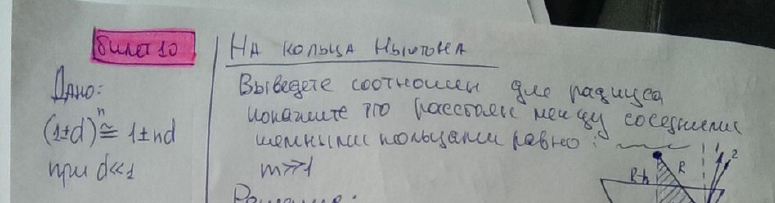 Билет 10
На кольца Ньютона
Дано:
(1±d)ⁿ ≅ 1±nd
при d<<1
Выведете соотношен для радиуса
покажите что расстоян между соседними
темными кольцами равно:
m>>1
Решение:
R-h
R
1
2